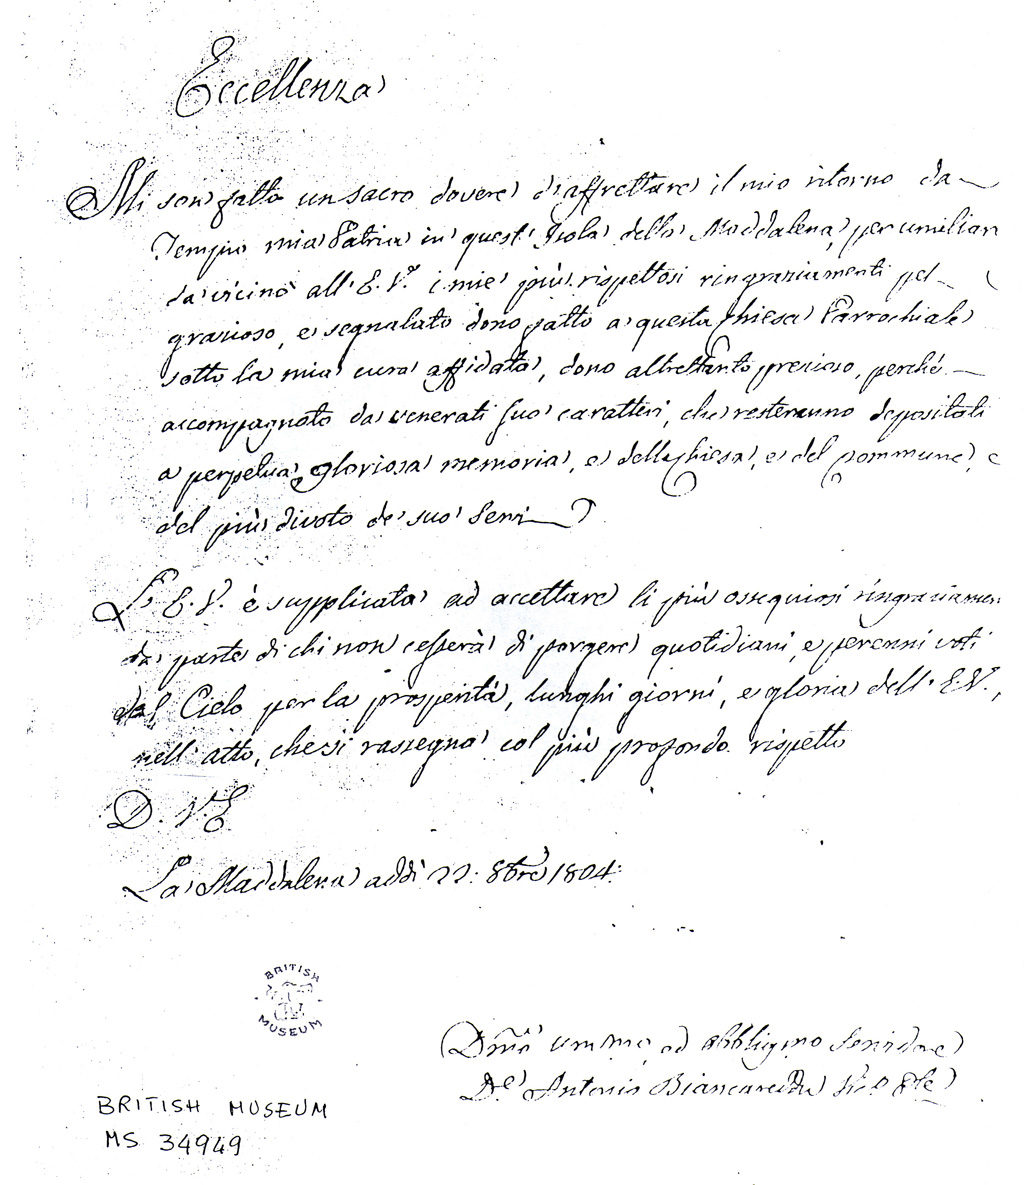 Eccellenza
Mi son fatto un sacro dovere d'affrettare il mio ritorno da
Tempio mia Patria in quest' Isola della Maddalena, per umiliar
da vicino all' E. V. i miei più rispettosi ringraziamenti pel
grazioso, e segnalato dono fatto a questa Chiesa Parrochiale
sotto la mia cura affidata, dono altrettanto prezioso, perché
accompagnato da venerati suoi caratteri, che resteranno depositati
a perpetua, gloriosa memoria, e della Chiesa, e del Commune, e
del più divoto de' suoi Servi
L' E. V. è supplicata ad accettare li più ossequiosi ringraziamen
da parte di chi non cesserà di porgere quotidiani, e perenni voti
dal Cielo per la prosperità, lunghi giorni, e gloria dell' E. V.,
nell' atto, che si rassegna col più profondo rispetto
D. V. E
La Maddalena addì 22. 8bre 1804.
BRITISH
MUSEUM
Dmo ummo ed obbligmo Servidore
Antonio Biancareddu
BRITISH MUSEUM
MS 34949